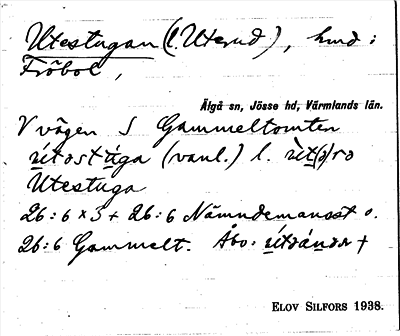 Utestugan (l. Uterud), hmd i
Fröbol,
Älgå sn, Jösse hd, Värmlands län.
V vägen S Gammeltomten
útostúga (vanl.) l. ùt(ə)ro
Utestuga
26:6 x 3 + 26:6 Nämndemansst o.
26:6 Gammelt. Åbo:
ELOV SILFORS 1938.